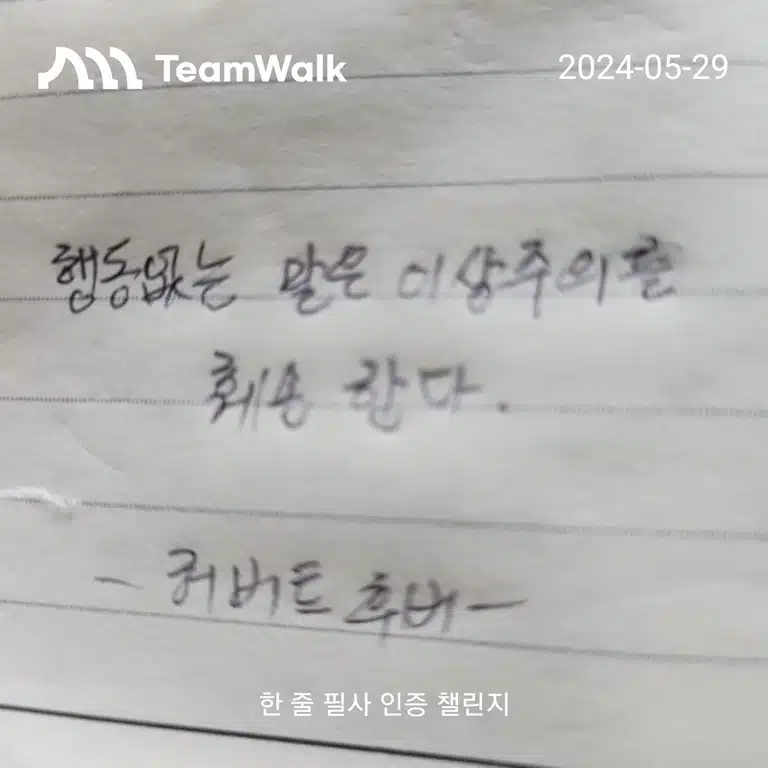 TeamWalk
2024-05-29
행동없는 말은 이상주의를
훼손 한다.
- 허버트 후버 -
한 줄 필사 인증 챌린지